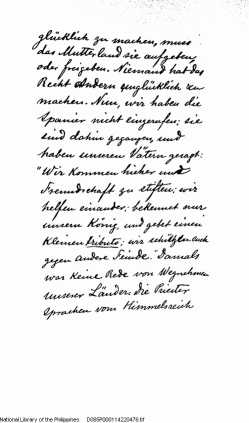 glücklich zu machen, muss
das Mutterland sie aufgeben
oder freigeben. Niemand hat das
Recht Andern unglücklich zu
machen. Nun, wir haben die
Spanier nicht eingerufen; sie
sind dahin gegangen und
haben unseren Vätern gesagt:
"Wir kommen hieher um
Freundschaft zu stiften; wir
helfen einander; bekennet nur
unsern König und gebet einen
kleinen tributo; wir schützen euch
gegen andere Feinde." Damals
war keine Rede von Wegnehmen
unserer Länder. Die Priester
sprachen vom Himmelreich
National Library of the Philippines D085P000114220476.tif